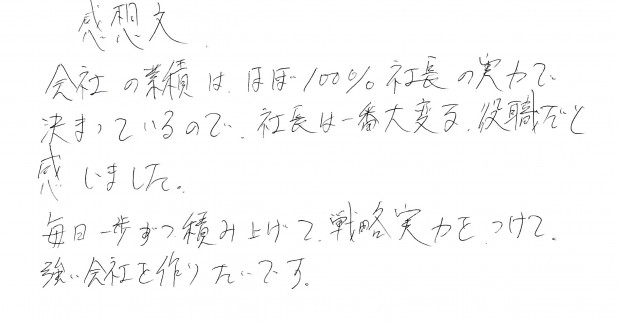 感想文
会社の業績は、ほぼ100%社長の実力で
決まっているので、社長は一番大変る、役職だと
感じました。
毎日一歩ずつ積み上げて、戦略実力をつけて、
強い会社を作りたいです。